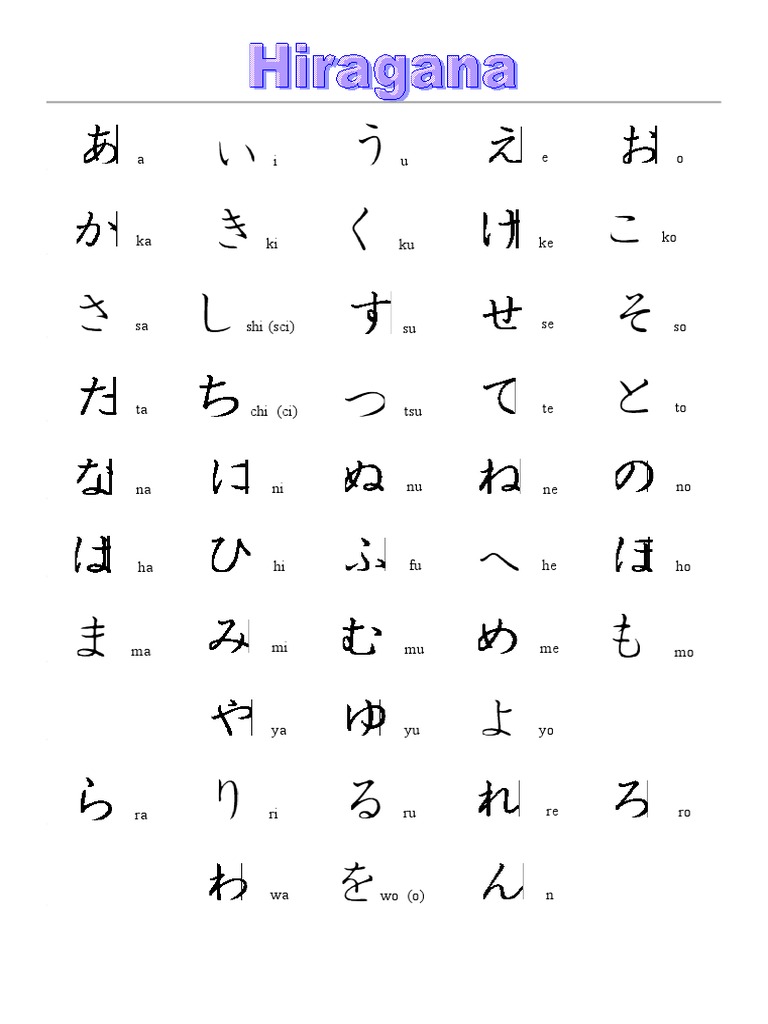 Hiragana
あ a い i う u え e お o
か ka き ki く ku け ke こ ko
さ sa し shi (sci) す su せ se そ so
た ta ち chi (ci) つ tsu て te と to
な na に ni ぬ nu ね ne の no
は ha ひ hi ふ fu へ he ほ ho
ま ma み mi む mu め me も mo
や ya ゆ yu よ yo
ら ra り ri る ru れ re ろ ro
わ wa を wo (o) ん n